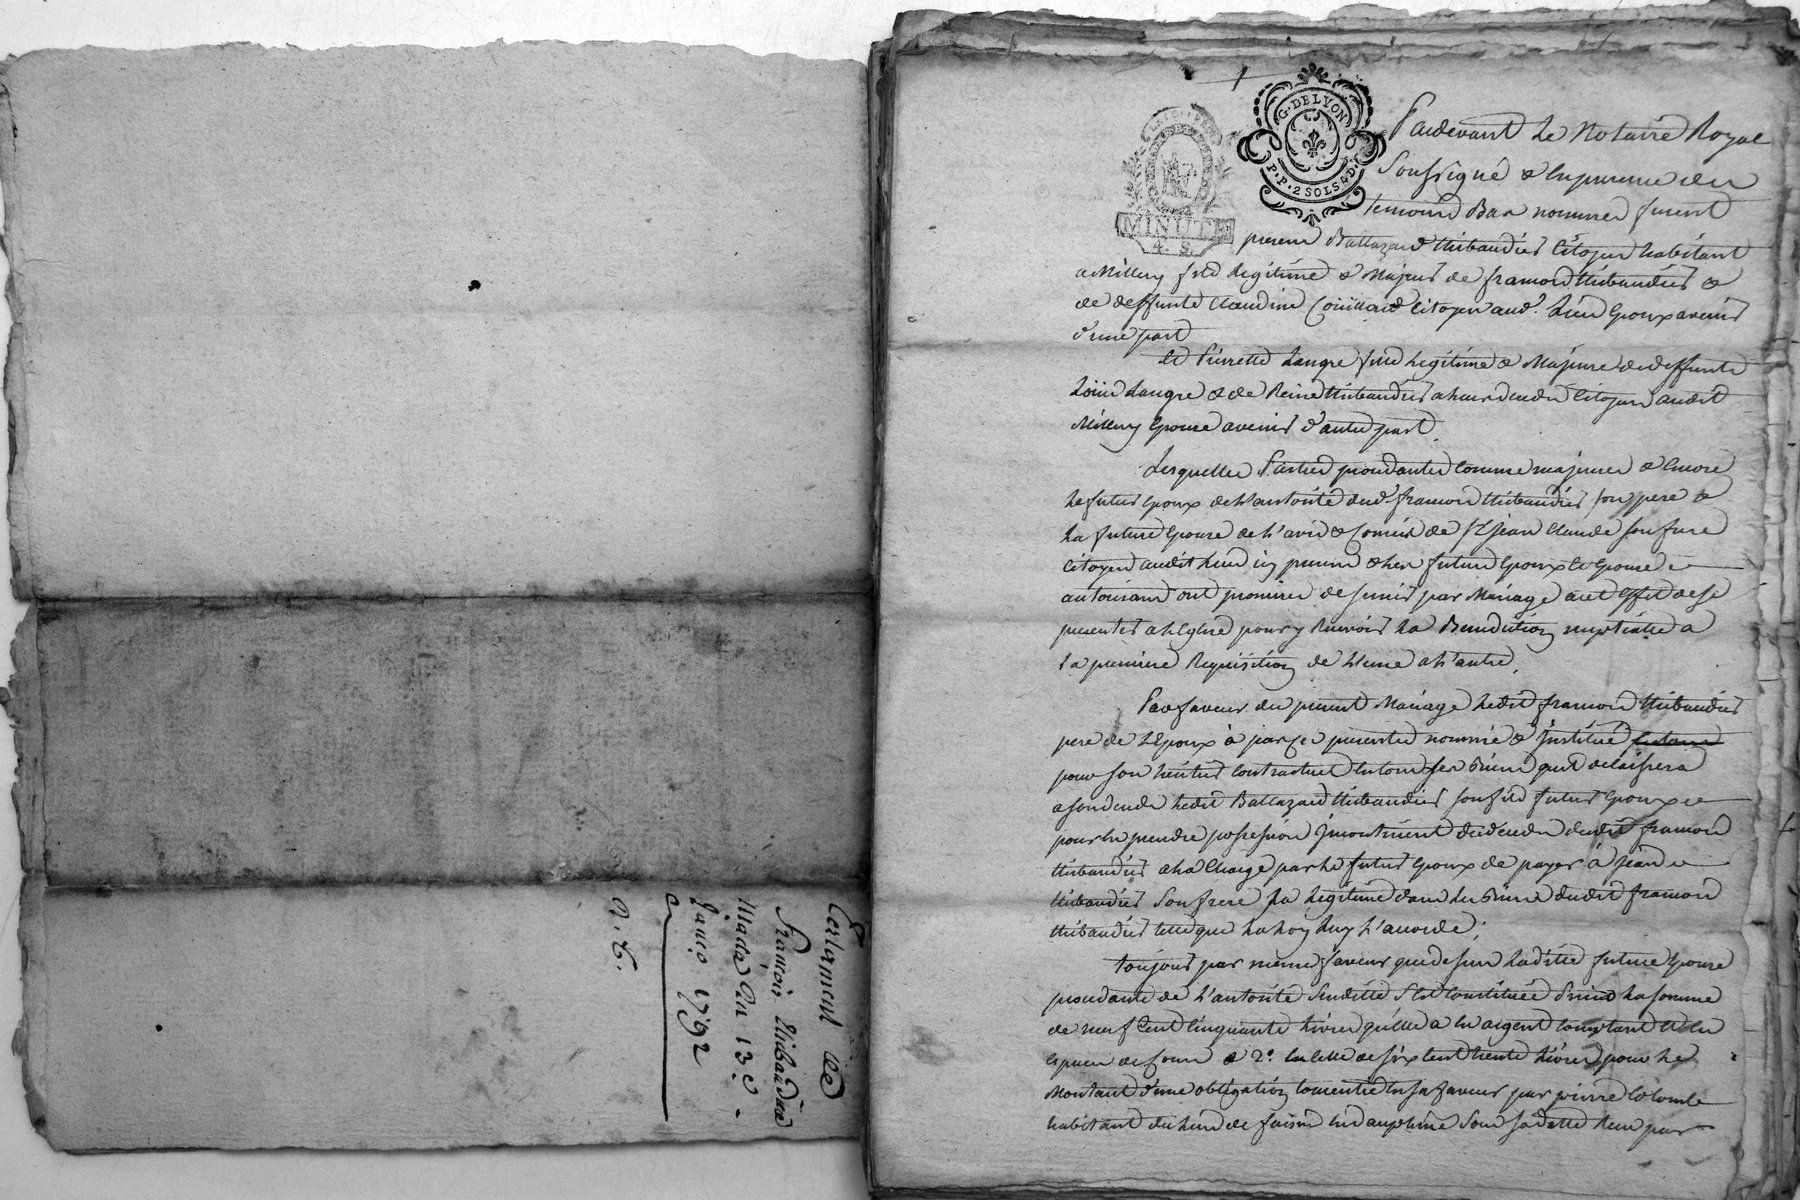 Testament de
François thibaudier
Malade du 13e.
Janer. 1792
G. DE LYON
P. P. 2 SOLS 4 D.
MINUTE
4. S.
Pardevant Le Notaire Royal
Soussigné & En presence des
temoins Bas nommés furent
presens Baltazard thibaudier Citoyen habitant
a Millery fils Legitime & Majeur de francois thibaudier &
de deffunte Claudine Couillard Citoyen aud. Lieu Epoux avenir
d'une part
Et Pierrette Langre fille Legitime & Majeure de deffunt
Loüis Langre & de Reine thibaudier a heur Citoyens audit
Millery Epouse avenir d'autre part.
Lesquelles Parties procedantes Comme majeures & Encore
Le futur Epoux de L'autorité dud. francois thibaudier son pere &
La future Epouse de L'avis & Conseil de Sr. Jean Claude son frere
Citoyen audit Lieu icy present & Les futurs Epoux Et Epouse
autorisant ont promis de s'unir par Mariage a cet Effet de se
presenter a L'Eglise pour y Recevoir La Benediction nuptialle a
La premiere Requisition de L'une a L'autre.
En faveur du present Mariage Ledit francois thibaudier
pere de L'Epoux à par Ces presentes nommé & Institué
pour son heritier Contractuel En tous ses Biens qu'il delaissera
a son deceds Ledit Baltazard thibaudier son fils futur Epoux
pour En prendre possession Incontinent du deceds dudit francois
thibaudier a La Charge par Le futur Epoux de payer à Jean
thibaudier Son frere La Legitime dans Les Biens dudit francois
thibaudier telle que La Loy Luy L'accorde;
toujours par même faveur que dessus Laditte future Epouse
procedante de L'autorité Susditte S'est Constituée En La somme
de neuf Cent Cinquante Livres qu'elle a En argent Comptant Et En
Especes de Cours & 2°. En Celle de six Cent trente Livres pour Le
Montant d'une obligation Consentie En sa faveur par pierre Colombe
habitant du Lieu de En dauphiné Sous sa datte Reçu par